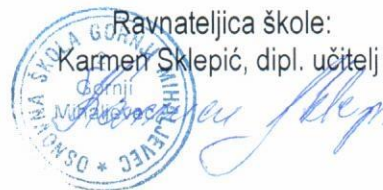 Ravnateljica škole:
Karmen Sklepić, dipl. učitelj
OSNOVNA ŠKOLA GORNJI MIHALJEVEC *
Gornji
Mihaljevec
Karmen Sklepi